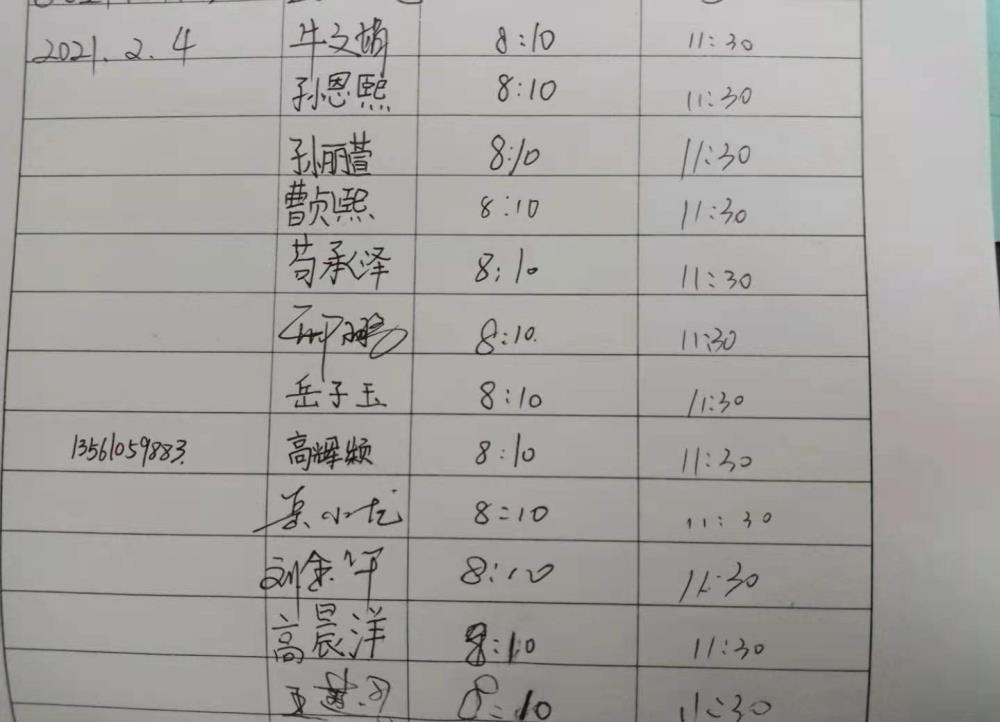 2021.2.4 牛文娟 8:10 11:30
孙恩熙 8:10 11:30
孙丽萱 8:10 11:30
曹贞熙 8:10 11:30
苟承泽 8:10 11:30
8:10. 11:30
岳子玉 8:10 11:30
13561059883. 高辉颖 8:10 11:30
小龙 8:10 11:30
刘金 8:10 11:30
高晨洋 8:10 11:30
8:10 11:30